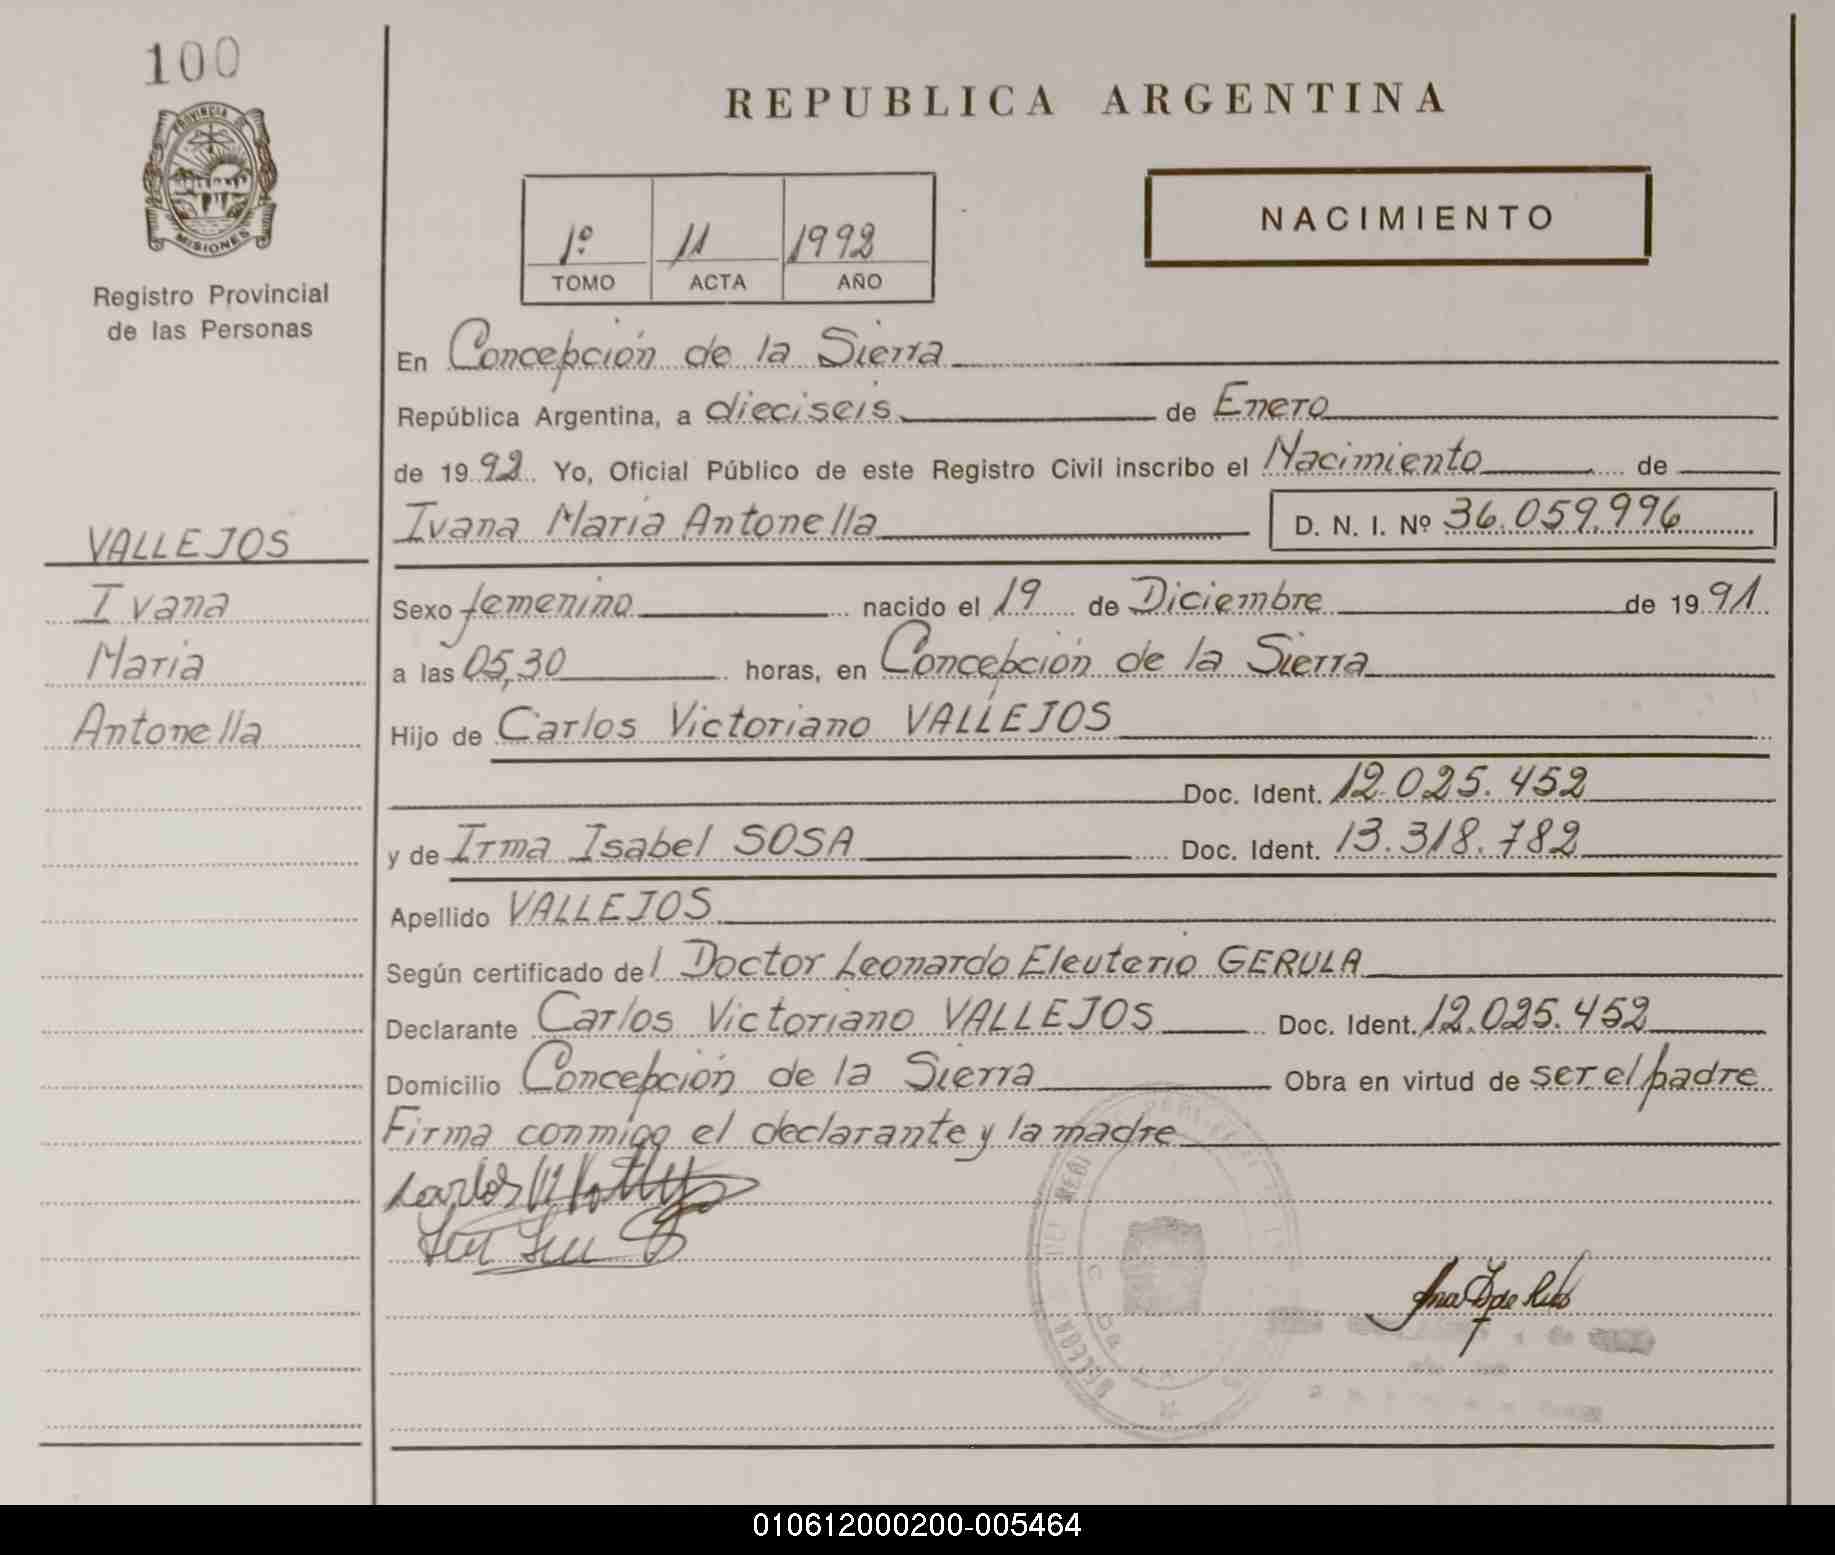 100
PROVINCIA DE
MISIONES
Registro Provincial
de las Personas
VALLEJOS
Ivana
Maria
Antonella
REPUBLICA ARGENTINA
1º 11 1992
TOMO ACTA AÑO
NACIMIENTO
En Concepción de la Sierra
República Argentina, a dieciseis de Enero
de 1992 Yo, Oficial Público de este Registro Civil inscribo el Nacimiento de
Ivana Maria Antonella D. N. I. Nº 36.059.996
Sexo femenino nacido el 19 de Diciembre de 1991
a las 05,30 horas, en Concepción de la Sierra
Hijo de Carlos Victoriano VALLEJOS
Doc. Ident. 12.025.452
y de Irma Isabel SOSA Doc. Ident. 13.318.782
Apellido VALLEJOS
Según certificado del Doctor Leonardo Eleuterio GERULA
Declarante Carlos Victoriano VALLEJOS Doc. Ident. 12.025.452
Domicilio Concepción de la Sierra Obra en virtud de ser el padre
Firma conmigo el declarante y la madre
Carlos V
010612000200-005464